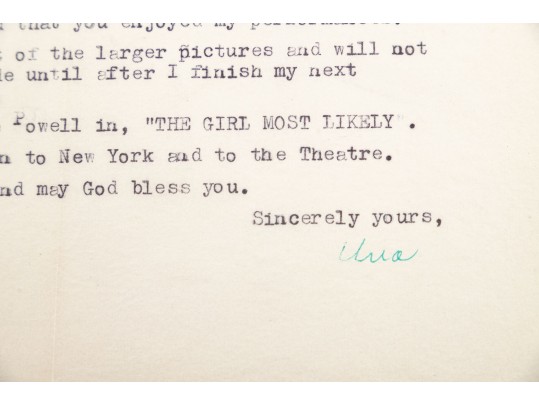 that you enjoyed my performance.
of the larger pictures and will not
until after I finish my next
Powell in, "THE GIRL MOST LIKELY".
to New York and to the Theatre.
nd may God bless you.
Sincerely yours,
Una